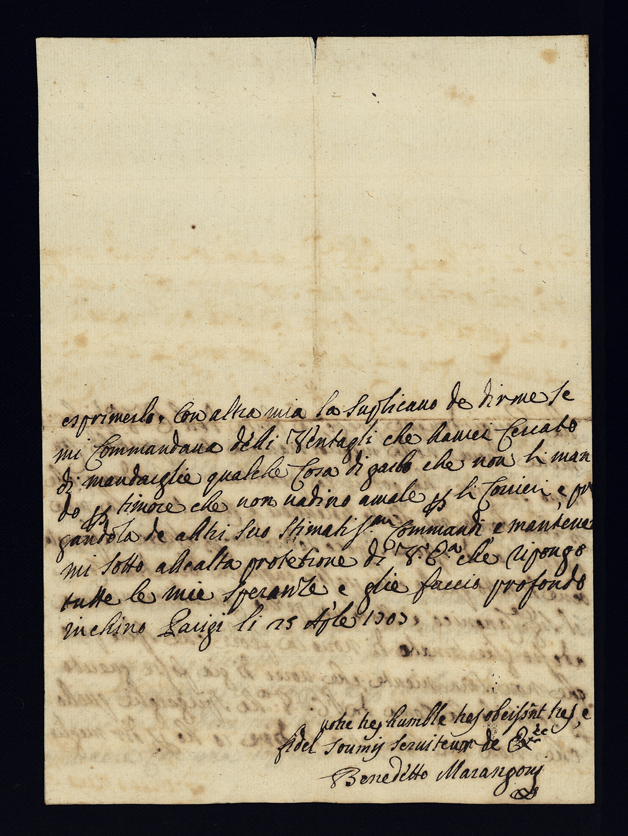 esprimerlo. Con altra mia la suplicavo de dirme se
mi Commandava delli Ventagli che havrei Cercato
di mandarglie qualche Cosa di garbo che non li man
do timore che non vadino amale li Corrieri e pre
gandola de altri suo stimatissmi Commandi e mantener
mi sotto all'alta protetione di V. E.za che ripongo
tutte le mie speranze e glie faccio profondo
inchino Parigi li 25 Aple 1703
votre tres humble tres obeissnt tres, e
fidel soumis serviteur de
Benedetto Marangoni